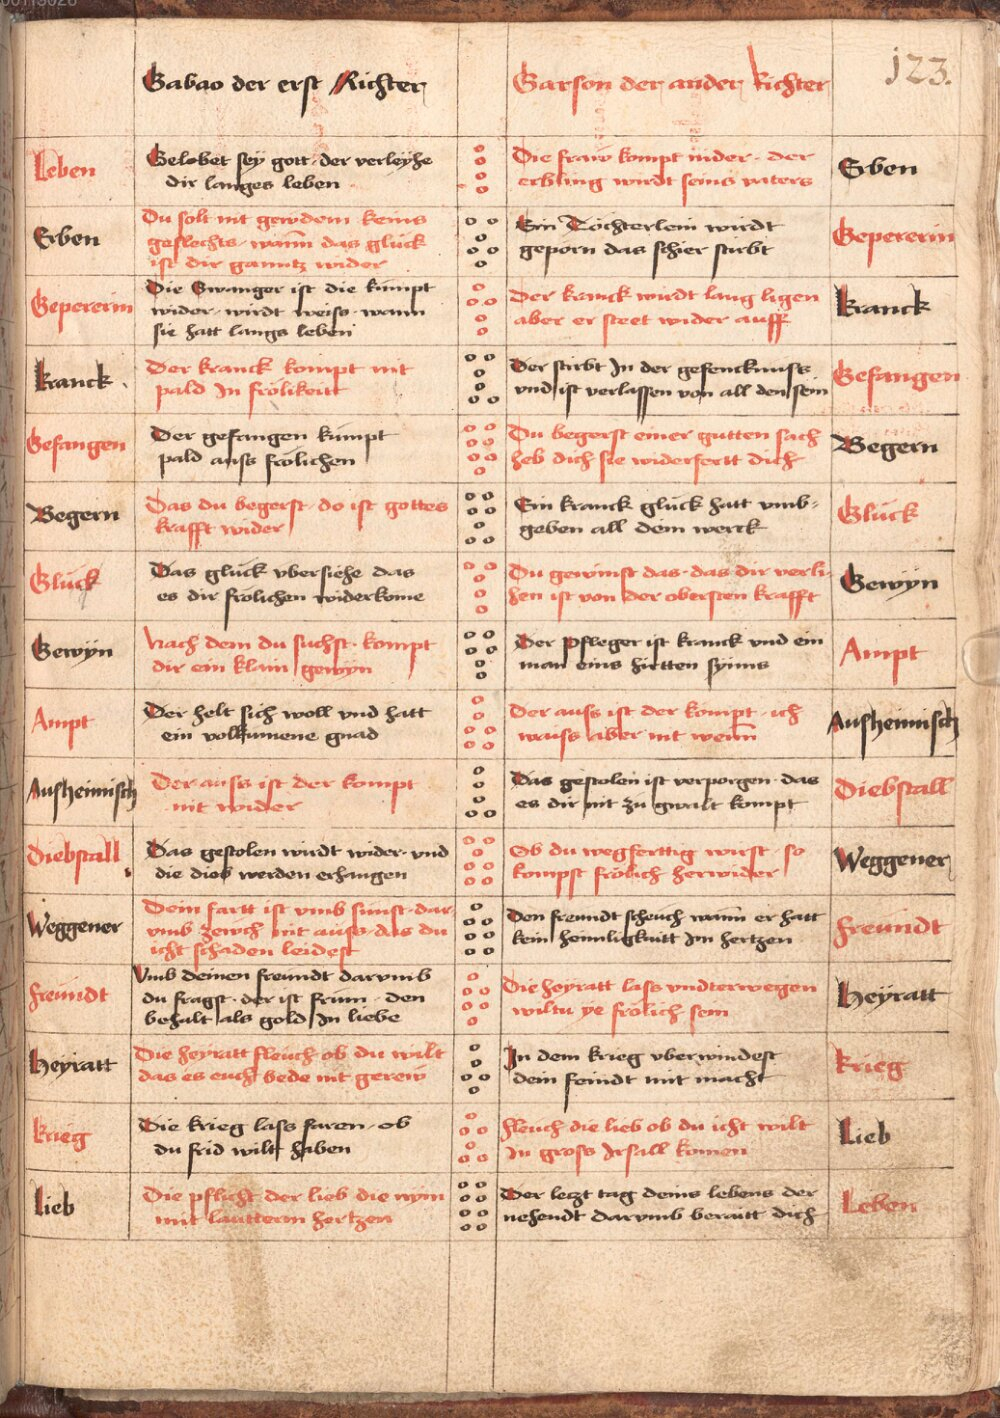 00113026
Gabao der erst Richter
Garson der ander Richter
123.
Leben
Gelobet sey gott der verleyhe
dir langes leben
Die fraw kompt nider der
erbling wirdt seins vaters
Erben
Erben
Du solt nit gewidem keins
geslechts wann das glück
ist dir ganntz wider
Ein Töchterlein wirdt
geporn das schier stirbt
Gepererin
Gepererin
Die Swanger ist die kumpt
wider wirdt weiss wann
sie hatt langs leben
Der kranck wirdt lang ligen
aber er steet wider auff
kranck
kranck
Der kranck kompt nit
pald In frölikeitt
Der stirbt In der gefencknuss
vnd ist verlassen von all den sein
Gefangen
Gefangen
Der gefangen kumpt
pald auss frölichen
Du begerst einer gutten sach
heb dich sie widerfertt dich
Begern
Begern
Das du begerst do ist gottes
krafft wider
Ein kranck glück hatt vmb-
geben all dein werck
Glück
Glück
Das glück vbersiehe das
es dir frölichen widerkome
Du gewinst das das dir verli-
hen ist von der obersten krafft
Gewyn
Gewyn
Nach dem du suchst kompt
dir ein klain gewyn
Der Pfleger ist kranck vnd ein
man eins hirtten synns
Ampt
Ampt
Der helt sich woll vnd hatt
ein volkumene gnad
Der auss ist der kompt ich
waiss aber nit wenn
Ausheimisch
Ausheimisch
Der auss ist der kompt
nit wider
Das gestolen ist verporgen das
es dir nit zu gwalt kompt
Diebstall
Diebstall
Das gestolen wirdt wider vnd
die dieb werden erhangen
Ob du wegferttig wirst so
kompst frölich herwider
Weggener
Weggener
Dein fartt ist vmb sunst dar
vmb zewch nit auss das du
icht schaden leidest
Den freundt scheuch wann er hatt
kein heimligkaitt Im hertzen
freundt
freundt
Vmb deinen freundt darvmb
du fragst der ist frum den
behalt als gold In liebe
Die heyratt lass vnndterwegen
wiltu ye frölich sein
Heyratt
Heyratt
Die heyratt fleuch ob du wilt
das es euch bede nit gerew
In dem krieg vberwindest
dein feindt mit macht
krieg
krieg
Die krieg lass faren ob
du frid wilt haben
fleuch die lieb ob du icht wilt
In gross Irsall komen
Lieb
Lieb
Die pflicht der lieb die nym
mit lautterm hertzen
Der letzt tag deins lebens der
nehendt darvmb beraitt dich
Leben